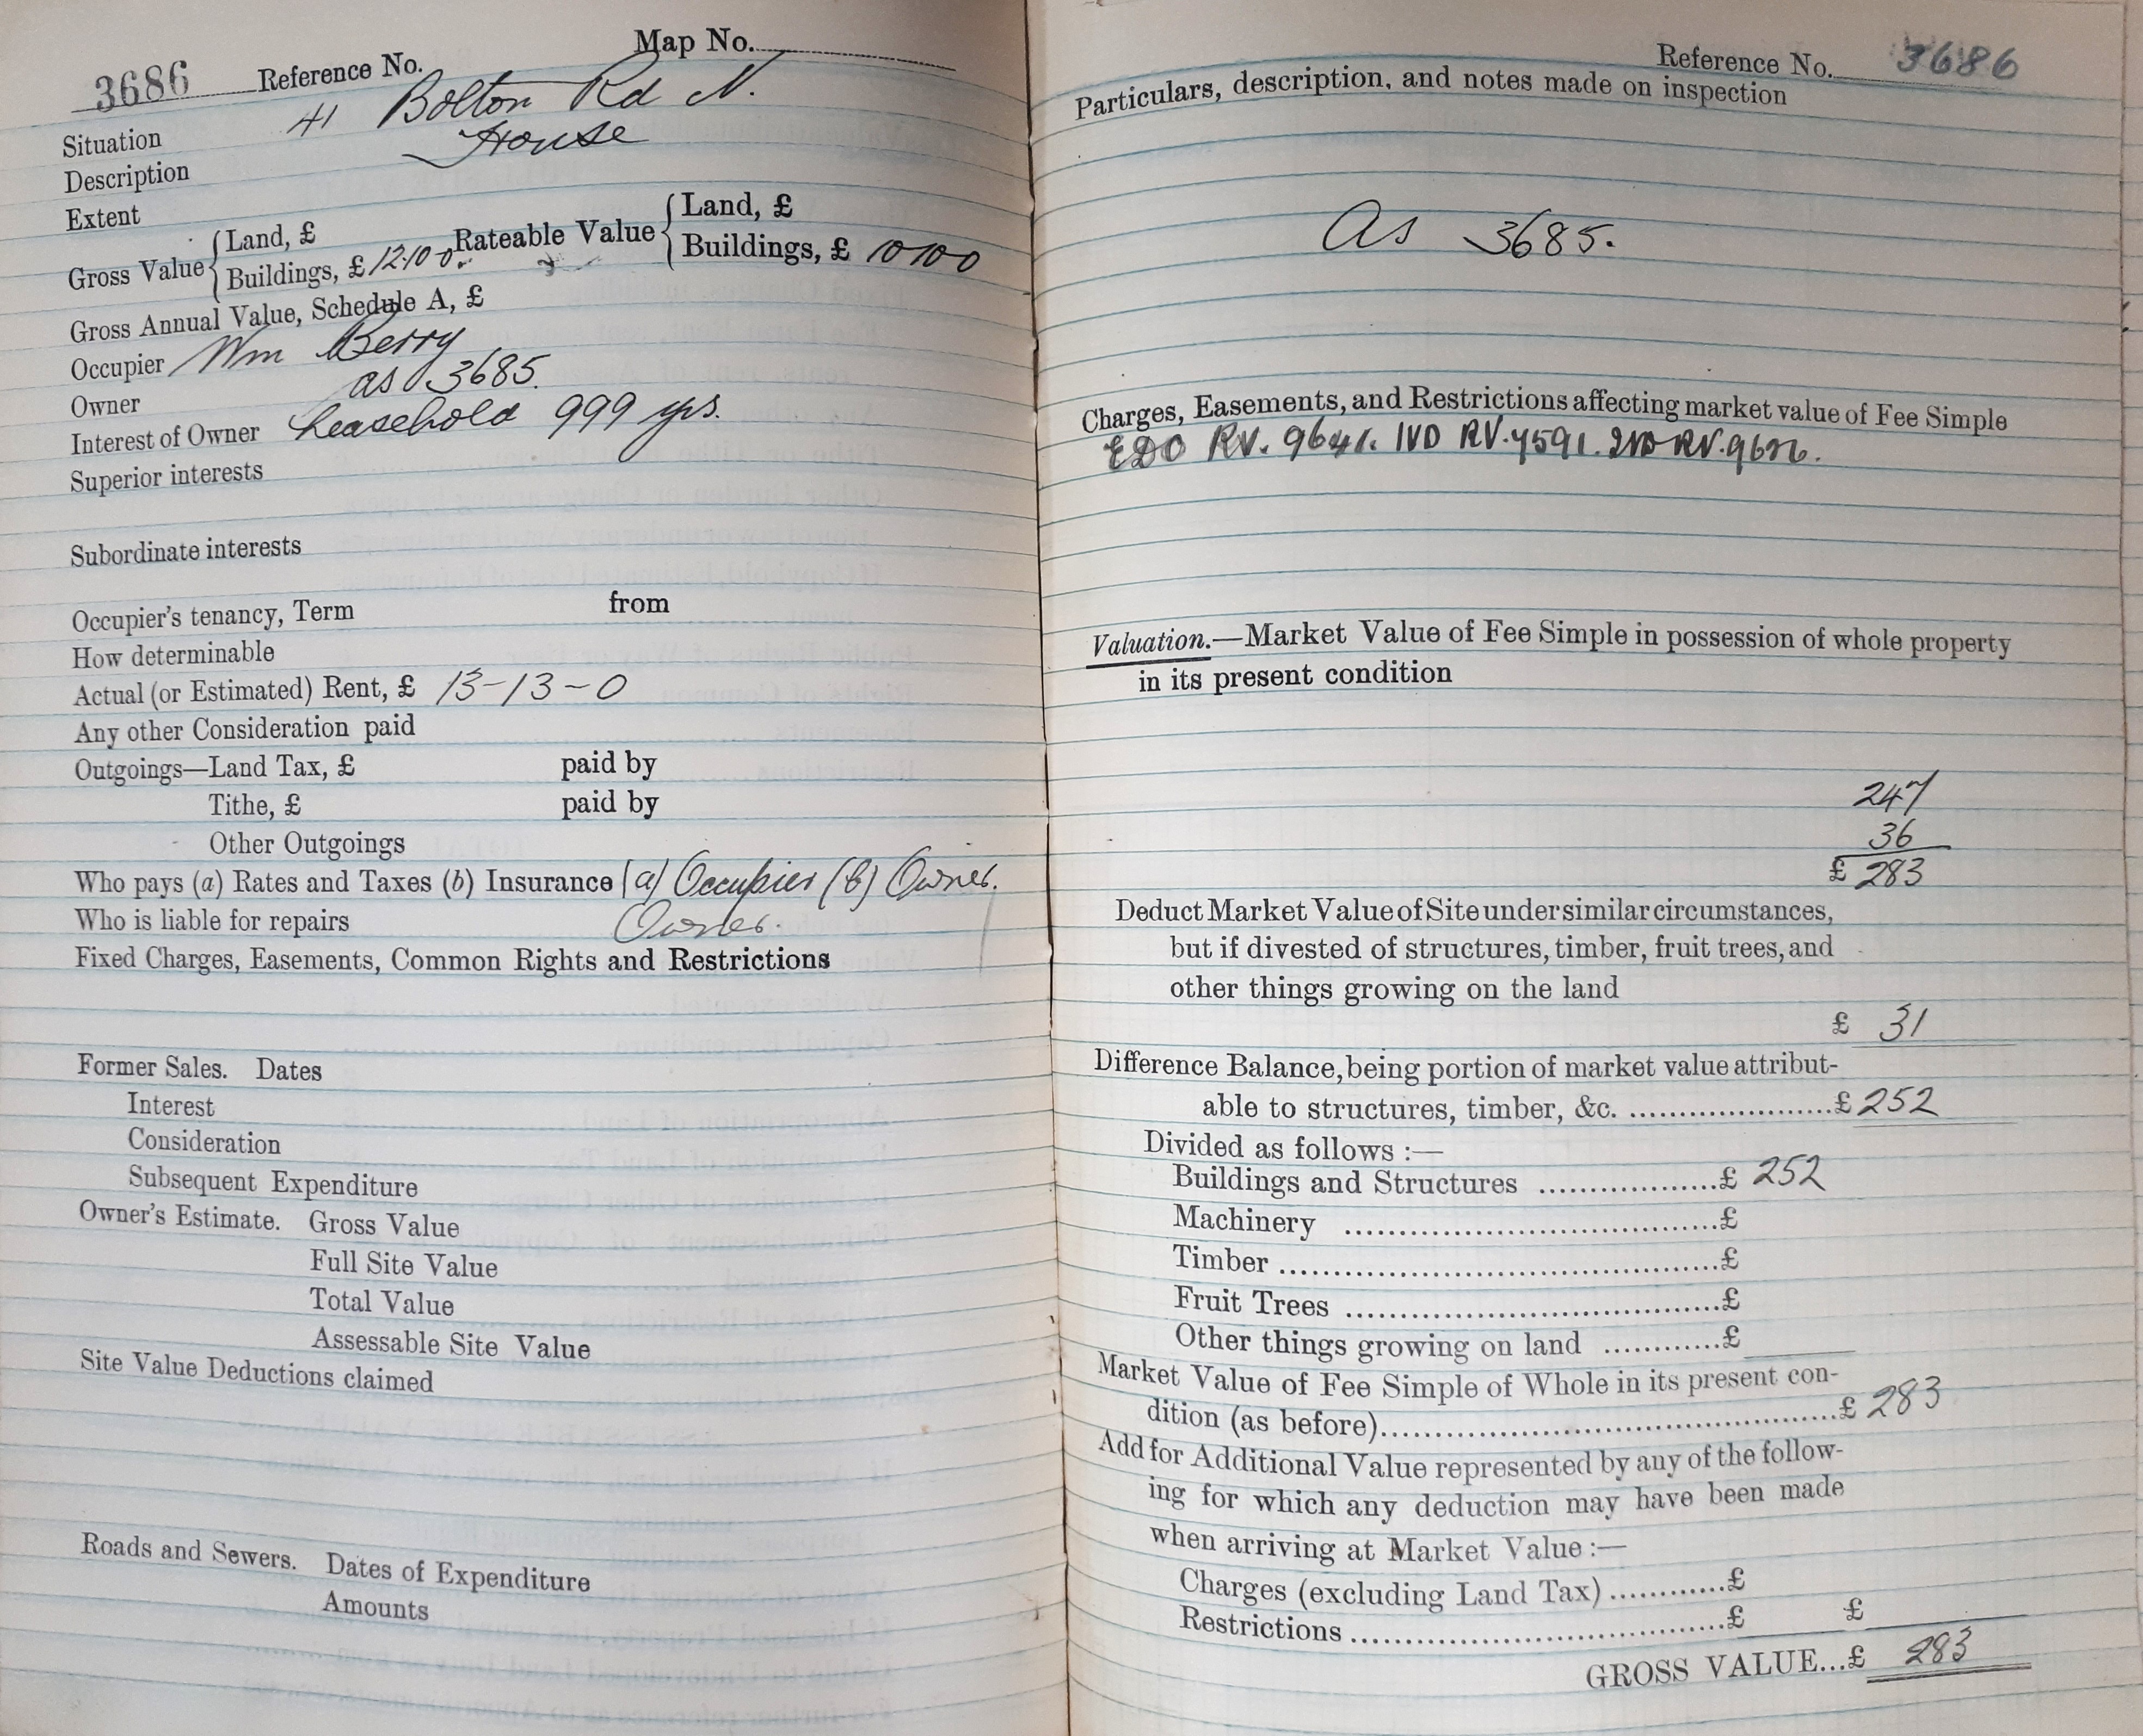 Map No.
3686 Reference No.
Situation 41 Bolton Rd N.
Description House
Extent
Gross Value { Land, £ Rateable Value { Land, £
Buildings, £ 12.10-0. Buildings, £ 10 10 0
Gross Annual Value, Schedule A, £
Occupier Wm Berry
Owner as 3685.
Interest of Owner Leasehold 999 yrs.
Superior interests
Subordinate interests
Occupier's tenancy, Term from
How determinable
Actual (or Estimated) Rent, £ 13-13-0
Any other Consideration paid
Outgoings—Land Tax, £ paid by
Tithe, £ paid by
Other Outgoings
Who pays (a) Rates and Taxes (b) Insurance (a) Occupier (b) Owner.
Who is liable for repairs Owner.
Fixed Charges, Easements, Common Rights and Restrictions
Former Sales. Dates
Interest
Consideration
Subsequent Expenditure
Owner's Estimate. Gross Value
Full Site Value
Total Value
Assessable Site Value
Site Value Deductions claimed
Roads and Sewers. Dates of Expenditure
Amounts
Reference No. 3686
Particulars, description, and notes made on inspection
As 3685.
Charges, Easements, and Restrictions affecting market value of Fee Simple
RV. 9641. IVD RV.
Valuation.—Market Value of Fee Simple in possession of whole property
in its present condition
247
36
£ 283
Deduct Market Value of Site under similar circumstances,
but if divested of structures, timber, fruit trees, and
other things growing on the land
£ 31
Difference Balance, being portion of market value attribut-
able to structures, timber, &c. ....................£ 252
Divided as follows :—
Buildings and Structures ..................£ 252
Machinery ......................................£
Timber .............................................£
Fruit Trees ......................................£
Other things growing on land ............£
Market Value of Fee Simple of Whole in its present con-
dition (as before)..............................................£ 283
Add for Additional Value represented by any of the follow-
ing for which any deduction may have been made
when arriving at Market Value :—
Charges (excluding Land Tax) ............£
Restrictions ......................................£ £
GROSS VALUE...£ 283